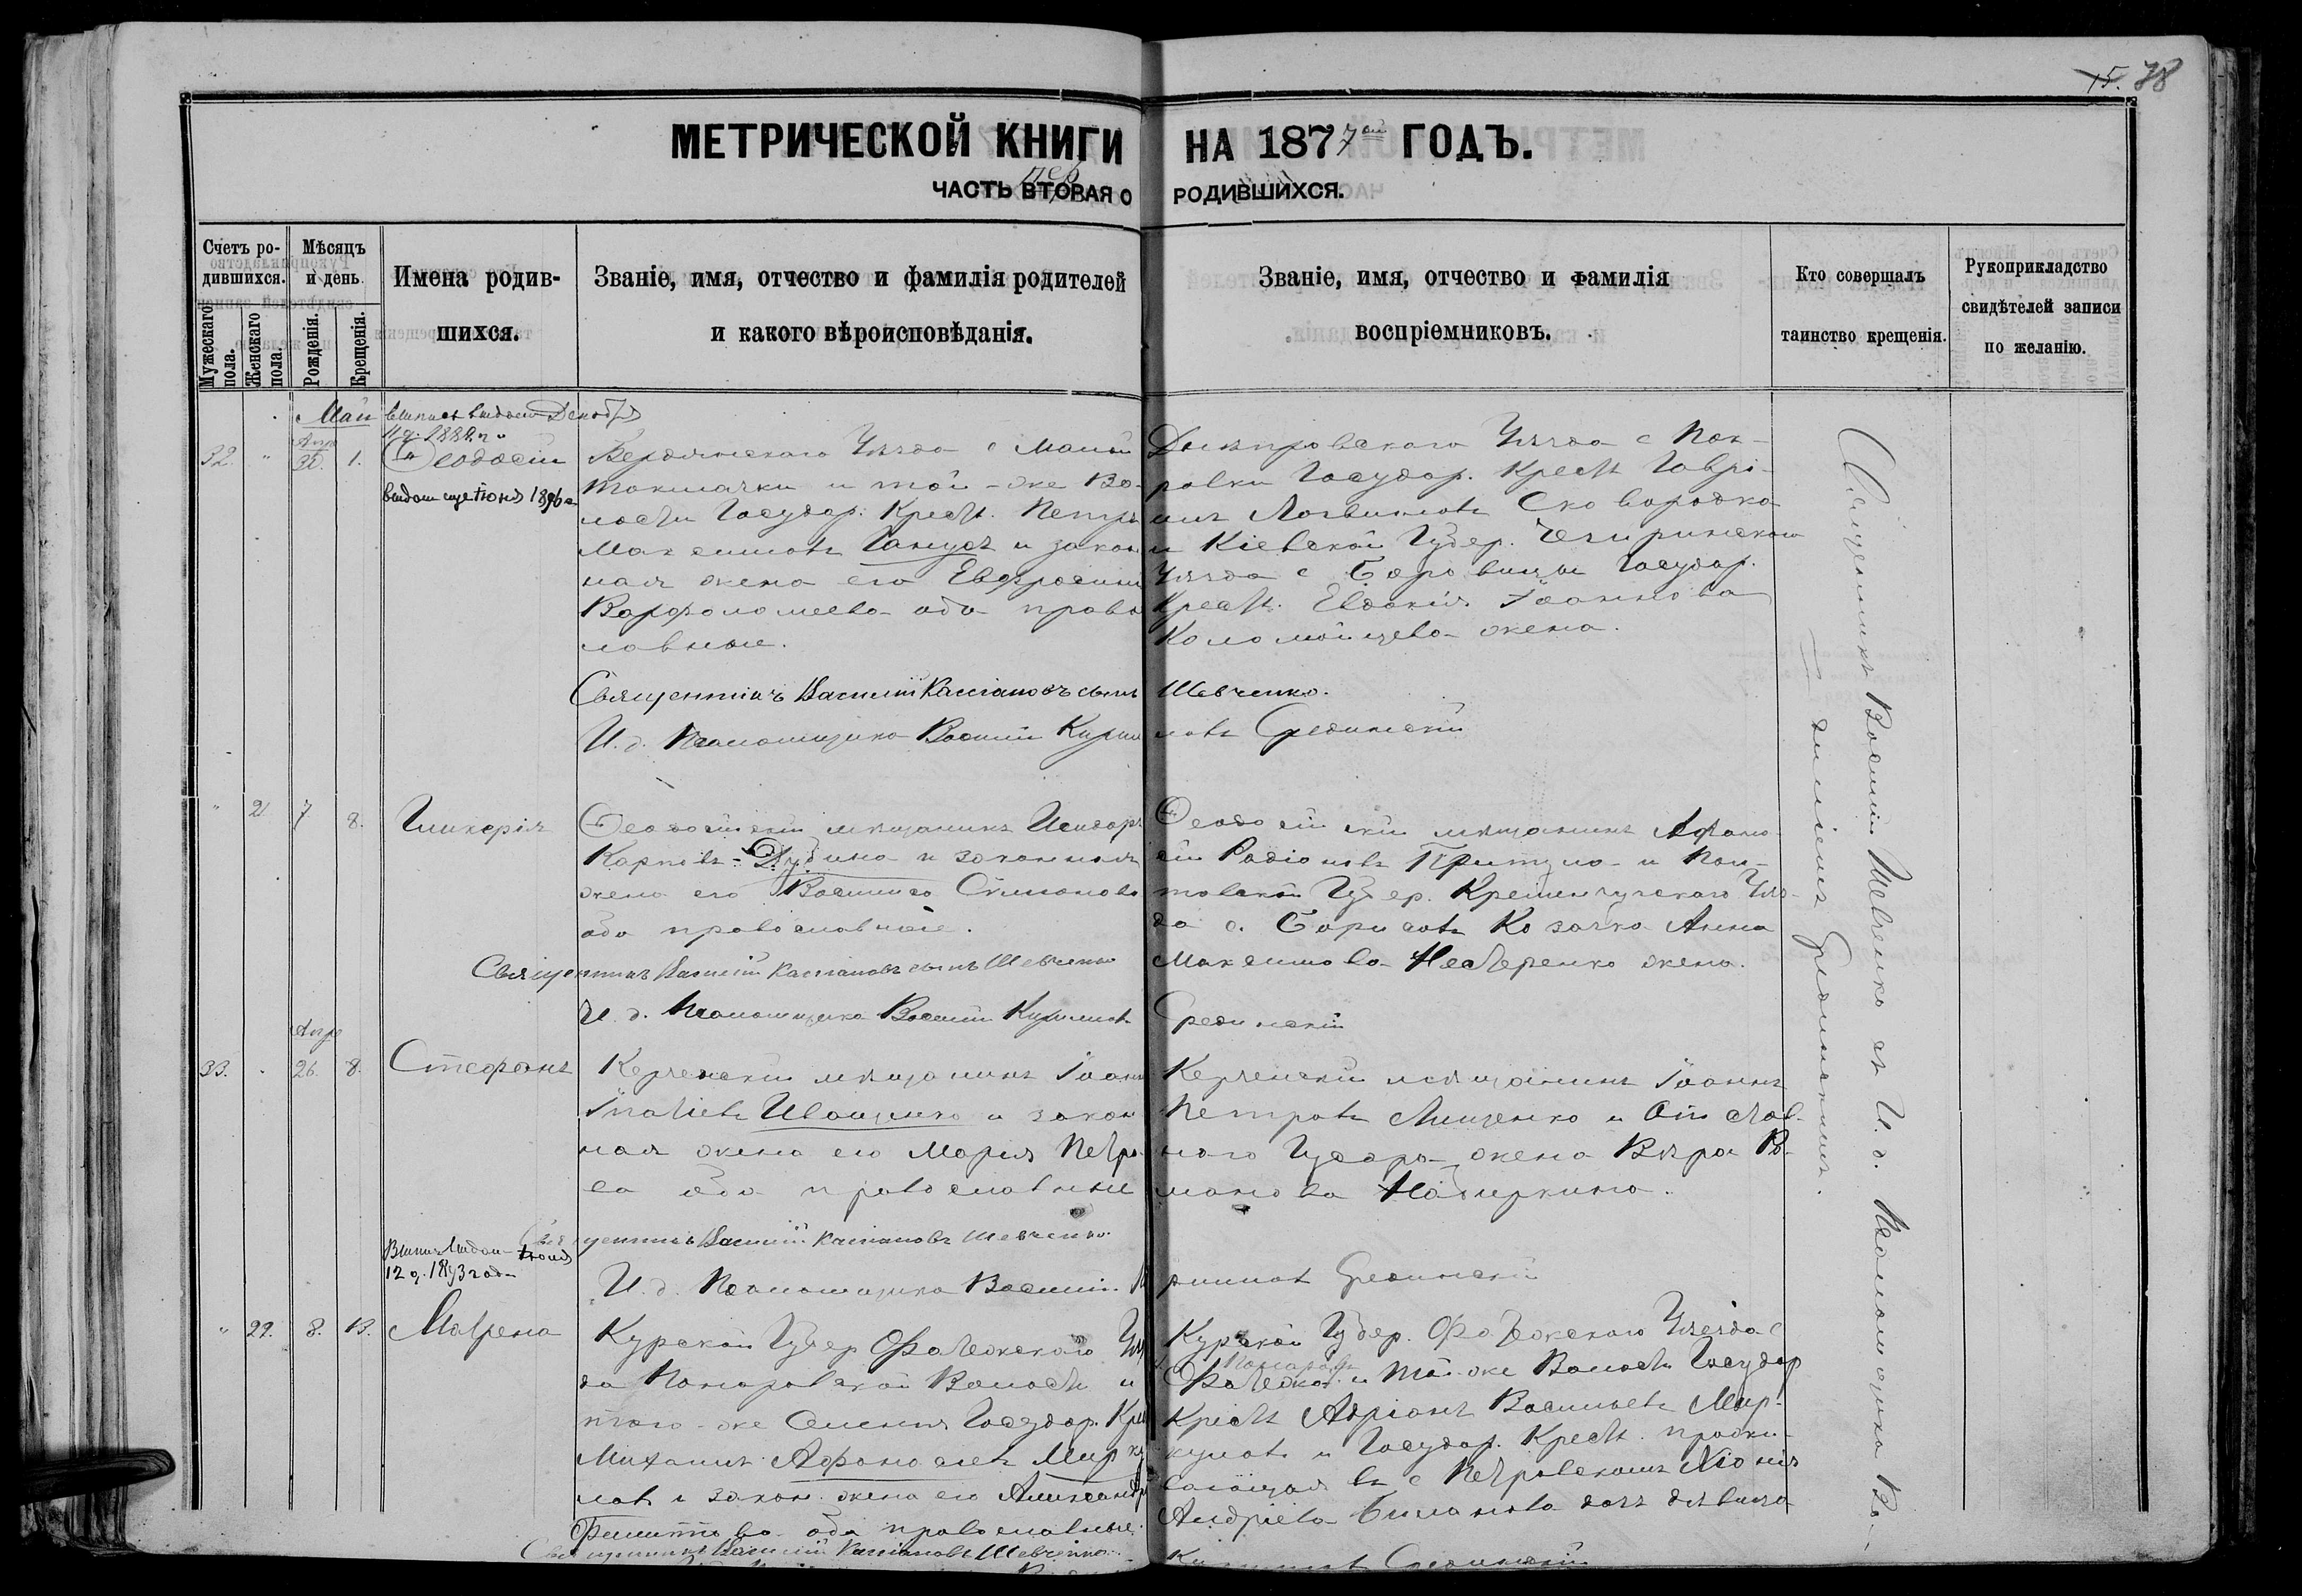 15. 78
МЕТРИЧЕСКОЙ КНИГИ НА 1877ой ГОДЪ.
ЧАСТЬ ВТОРАЯ О РОДИВШИХСЯ.
пер
Счетъ ро-
дившихся.
Мужескаго пола.
Женскаго пола.
Мѣсяцъ
и день.
Рожденія.
Крещенія.
Имена родив-
шихся.
Званіе, имя, отчество и фамилія родителей
и какого вѣроисповѣданія.
Званіе, имя, отчество и фамилія
воспріемниковъ.
Кто совершалъ
таинство крещенія.
Рукоприкладство
свидѣтелей записи
по желанію.
Май
Декабря
32. " Апр 30. 1.
Ѳеодосій
Бердянскаго Уѣзда с Малой
Токмачки и той-же Во-
лости Государ. Крест. Петръ
Максимовъ Ганусъ и закон
ная жена его Евфросинія
Варфоломеева оба право
лавные.
Днѣпровскаго Уѣзда с Пок-
ровки Государ. Крест Гаврі-
илъ Логвиновъ Сковородка
и Кіевской Губер. Чегиринскаго
Уѣзда с Боровицы Государ.
Крест. Евдокія Іоаннова
Коломойцева жена.
Священникъ Василій Кассіановъ сынъ Шевченко.
И. д. Псаломщика Василій Кирилловъ Срединскій
" 21 7 8. Гликерія
Ѳеодосійскій мѣщанинъ Исидоръ
Карповъ Дубина и законная
жена его Василиса Симонова
оба православные.
Ѳеодосійскій мѣщанинъ Афана-
сій Радіоновъ Притула и Пол-
тавской Губер. Кременчугскаго Уѣз-
да с. Борисовъ Козачка Анна
Максимова Нестеренко жена.
Священникъ Василій Кассіановъ сынъ Шевченко
И. д. Псаломщика Василій Кирилловъ Срединскій
33. Апр 26. 8. Стефанъ
Керченскій мѣщанинъ Іоаннъ
Игнатіевъ Иващенко и закон
ная жена его Марія Петро-
ва оба православные
Керченскій мѣщанинъ Іоаннъ
Петровъ Лищенко и Отстав-
наго Ундера жена Вѣра Ро-
манова Набиркина.
Священникъ Василій Кассіановъ Шевченко.
И. д. Псаломщика Василій Кирилловъ Срединскій
12 д. 1893 года
" 22. 8. 13. Матрена
Курской Губер Фатежскаго Уѣз
да Комаровской Волости и
того-же Селенія Государ. Крес
Михаилъ Афанасіевъ Мирку
ловъ и закон. жена его Александра
Филиппова оба православные.
Курской Губер. Фатежскаго Уѣзда с
и той-же Волости Государ
Крест Адріанъ Васильевъ Мир-
куловъ и Государ. Крест. прожи-
вающая въ с Петровскомъ Хіонія
Андріева дочь дѣвица
Священникъ Василій Кассіановъ Шевченко
Кирилловъ Срединскій
Священникъ Василій Шевченко съ И. д. Псаломщика Ва-
силіемъ Срединскимъ.